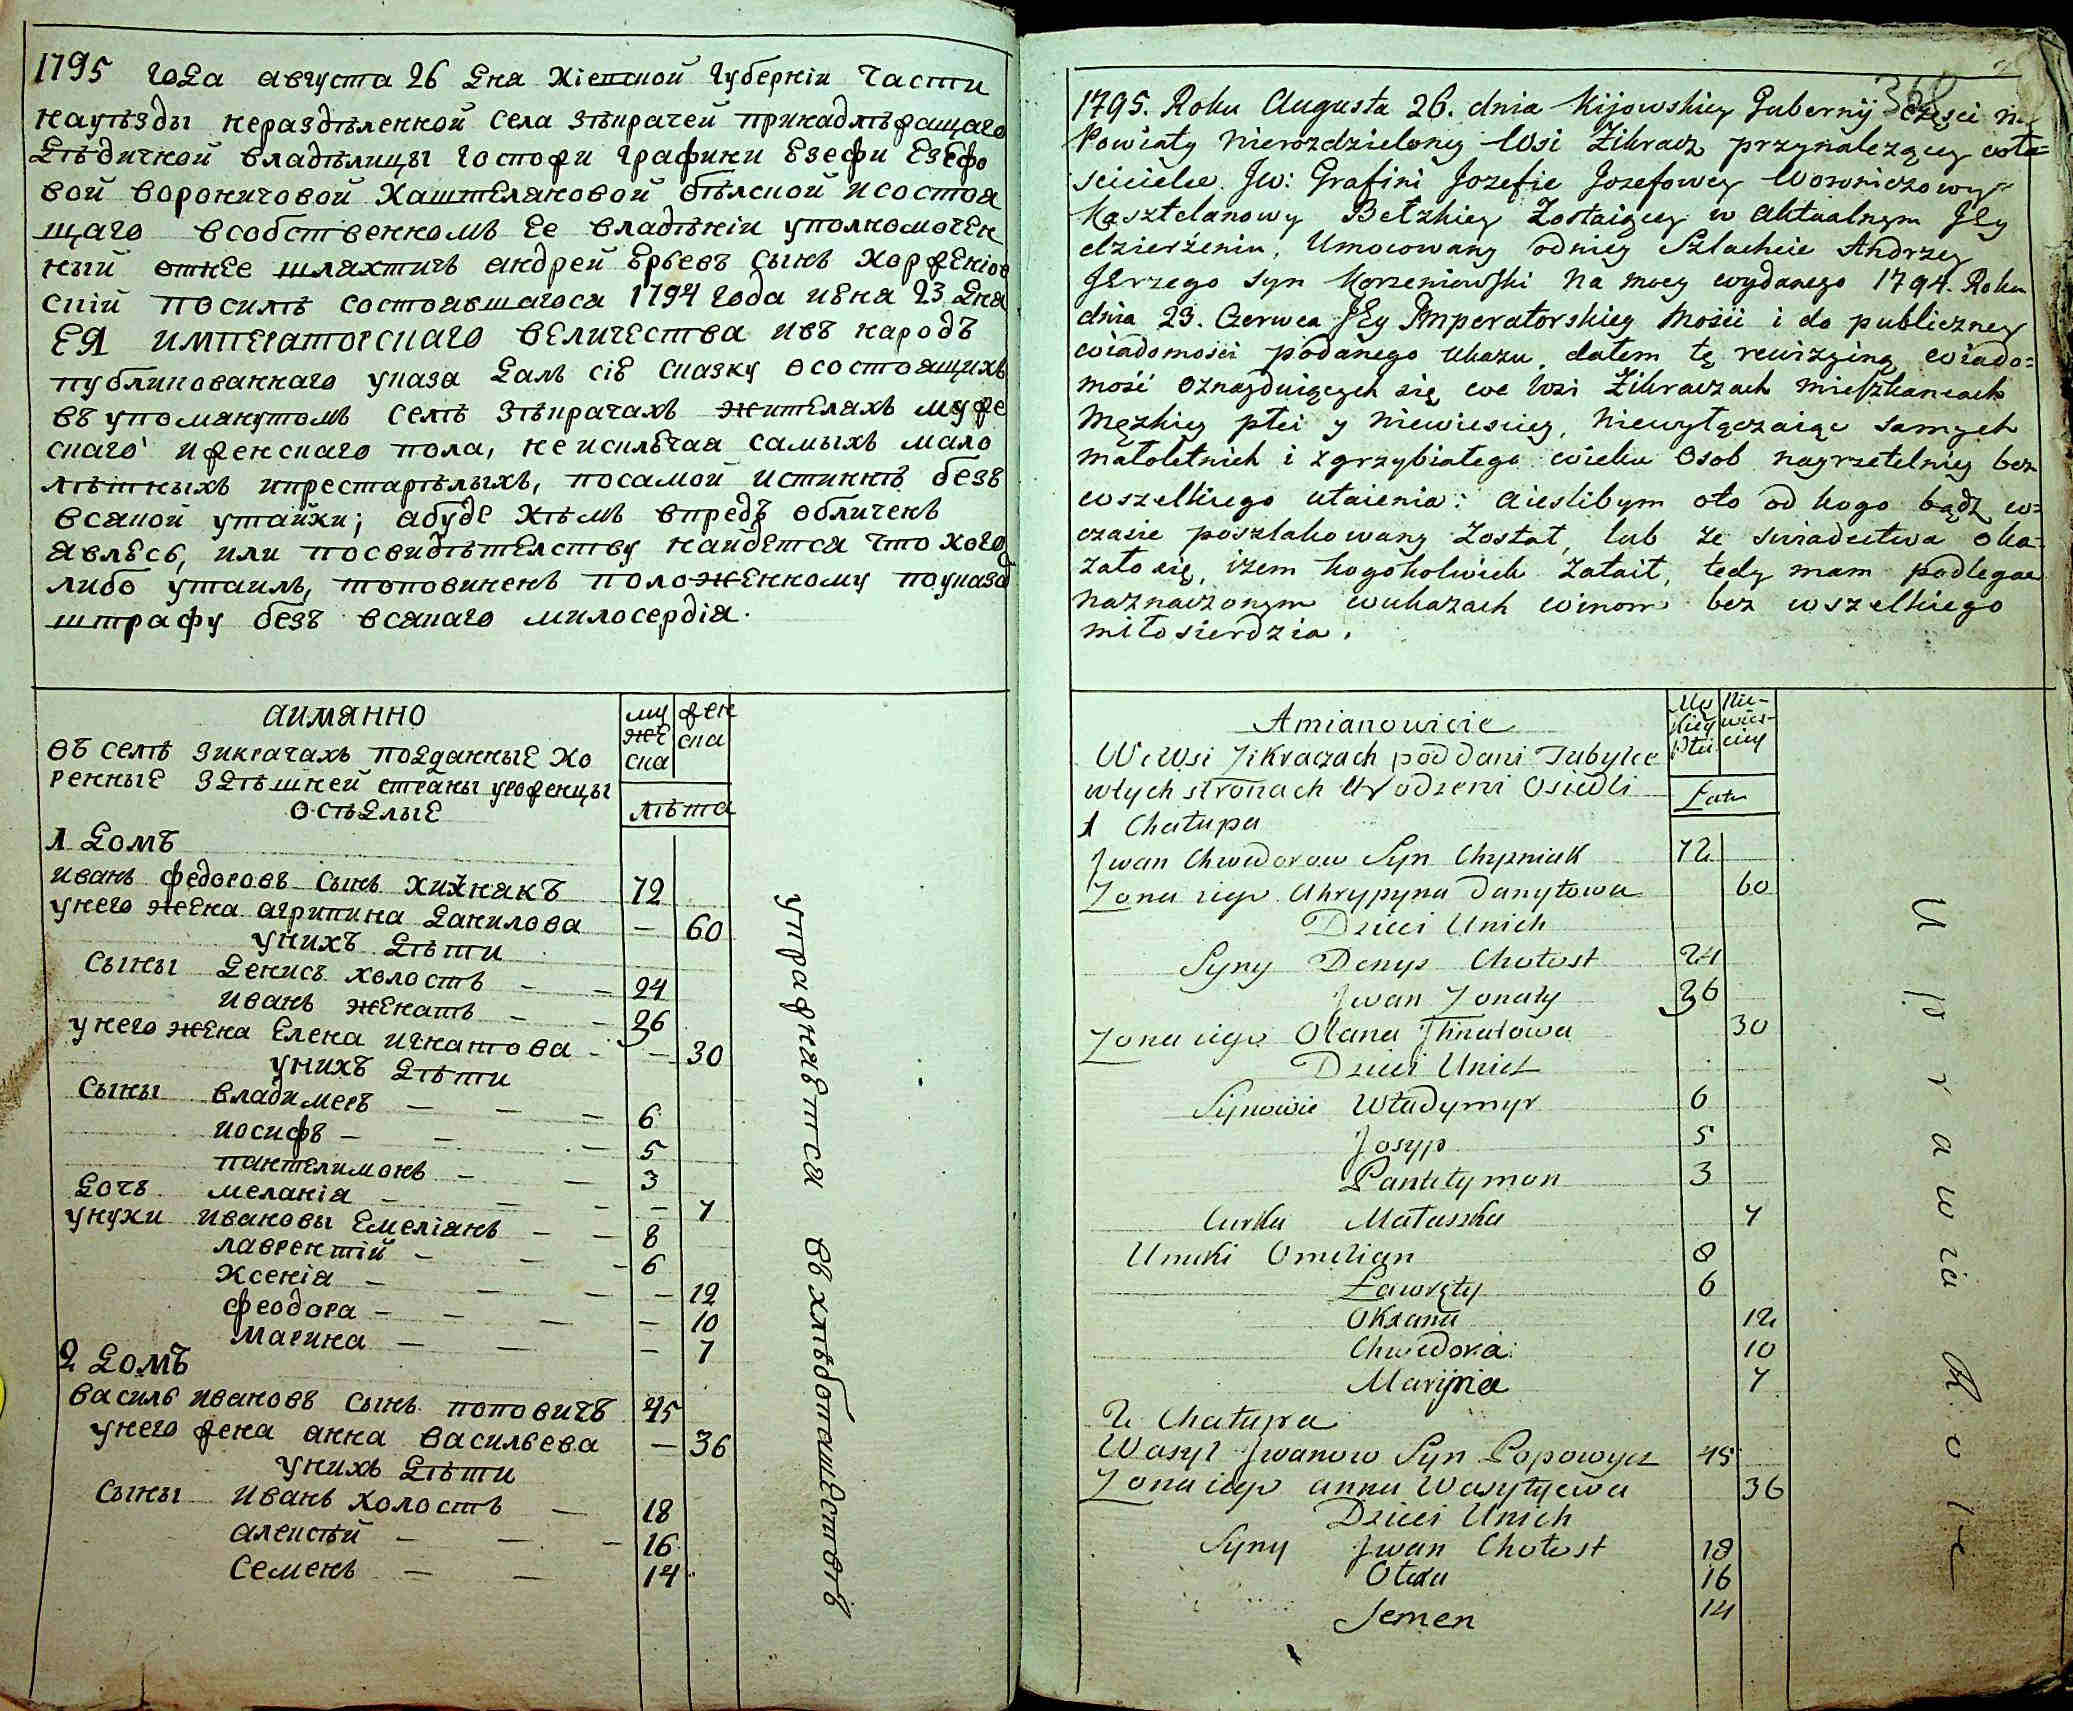 1795 года августа 26 дня Кіевской губерніи части
науѣзды нераздѣленной села Зѣкрачей принадлѣжащаго
дѣдичной владѣлицы Госпожи Графини Езефи Езефо
вой Вороничовой Каштеляновой бѣлской исостоя
щаго всобственномъ Ее владѣніи уполномочен
ный отнее шляхтичъ андрей Ерьевъ сынъ Корженіов
скій посилѣ состоявшагося 1794 года июня 23 дня
ЕЯ императорскаго величества ивъ народъ
публикованнаго указа далъ сіе сказку осостоящихъ
въ упомянутомъ селѣ Зѣкрачахъ жителяхъ муже
скаго иженскаго пола, не исключая самыхъ мало
лѣтныхъ ипрестарѣлыхъ, посамой истиннѣ безъ
всякой утайки; абуде кѣмъ впредъ обличенъ
явлюсь, или посвидѣтелству найдется что кого
либо утаилъ, топовиненъ положенному поуказа
штрафу безъ всякаго милосердія.
аимянно
въ селѣ Зикрачахъ подданные ко
ренные здѣшней страны уроженцы
осѣдлые
му
же
ска
жен
ска
лѣта
1 домъ
иванъ федоровъ сынъ хижнякъ 72
унего жена агрипина данилова — 60
унихъ дѣти
сыны денисъ холостъ — — 24
иванъ женатъ — — 36
унего жена Елена игнатова - — 30
унихъ дѣти
сыны владимеръ — — — 6
иосифъ — — — 5
пантелимонъ — — 3
дочь меланія — — — — 7
унуки ивановы Емеліанъ — — 8
лаврентій — — — 6
Ксенія — — — — 12
феодора — — — — 10
Марина — — — 7
2 домъ
василь ивановъ сынъ поповичъ 45
унего жена анна васильева — 36
унихъ дѣти
сыны иванъ холостъ — 18
алексѣй — — — 16
Семенъ — — 14
упражняется въ хлѣбопашествѣ
368
1795. Roku Augusta 26. dnia Kijowskiey Gubernij części na
Powiaty nierozdzieloney Wsi Zikracz przynalezącey wła=
scicielce. Jw: Grafini Jozefie Jozefowey Woroniczowey
Kasztelanowy Bełzkiey Zostaiącey w aktualnym JEy
dzierżeniu, Umocowany odniey Szlachcic Andrzey
JErzego syn Korzeniowski na mocy wydanego 1794. Roku
dnia 23. Czerwca JEy Imperatorskiey Mości i do publiczney
wiadomości podanego Ukazu, dałem tę rewizyiną wiado=
mość oznayduiących się we Wsi Zikraczach mieszkancach
Męzkiey płci y Niewiesciey, Niewyłączaiąc samych
małoletnich i zgrzybiałego wieku Osob nayrzetelniey bez
wszelkiego utaienia: aieslibym oto od kogo bądź w=
czasie poszlakowany Został, lub ze swiadectwa oka=
zało się, izem kogokolwiek Zataił, tedy mam podlegac
naznaczonym wukazach winom bez wszelkiego
miłosierdzia.
Amianowicie
We Wsi Zikraczach poddani Tubylce
wtych stronach Urodzeni Osiedli
Mę
skiey
Płci
Nie-
wies-
ciey
Lata
1 Chałupa
Jwan Chwedorow Syn Chyzniak 72
Zona iego Ahrypyna Danyłowa 60
Dzieci Unich
Syny Denys Chołost 24
Jwan Zonaty 36
Zona iego Olana Jhnatowa 30
Dzieci Unich
Synowie Władymyr 6
Josyp 5
Pantełymon 3
Curka Małaszka 7
Unuki Omelian 8
Ławręty 6
Oksana 12
Chwedora 10
Maryna 7
2 Chałupa
Wasyl Jwanow Syn Popowycz 45
Zona iego anna Wasylyewa 36
Dzieci Unich
Syny Jwan Chołost 18
Olexa 16
Semen 14
Uprawia Role